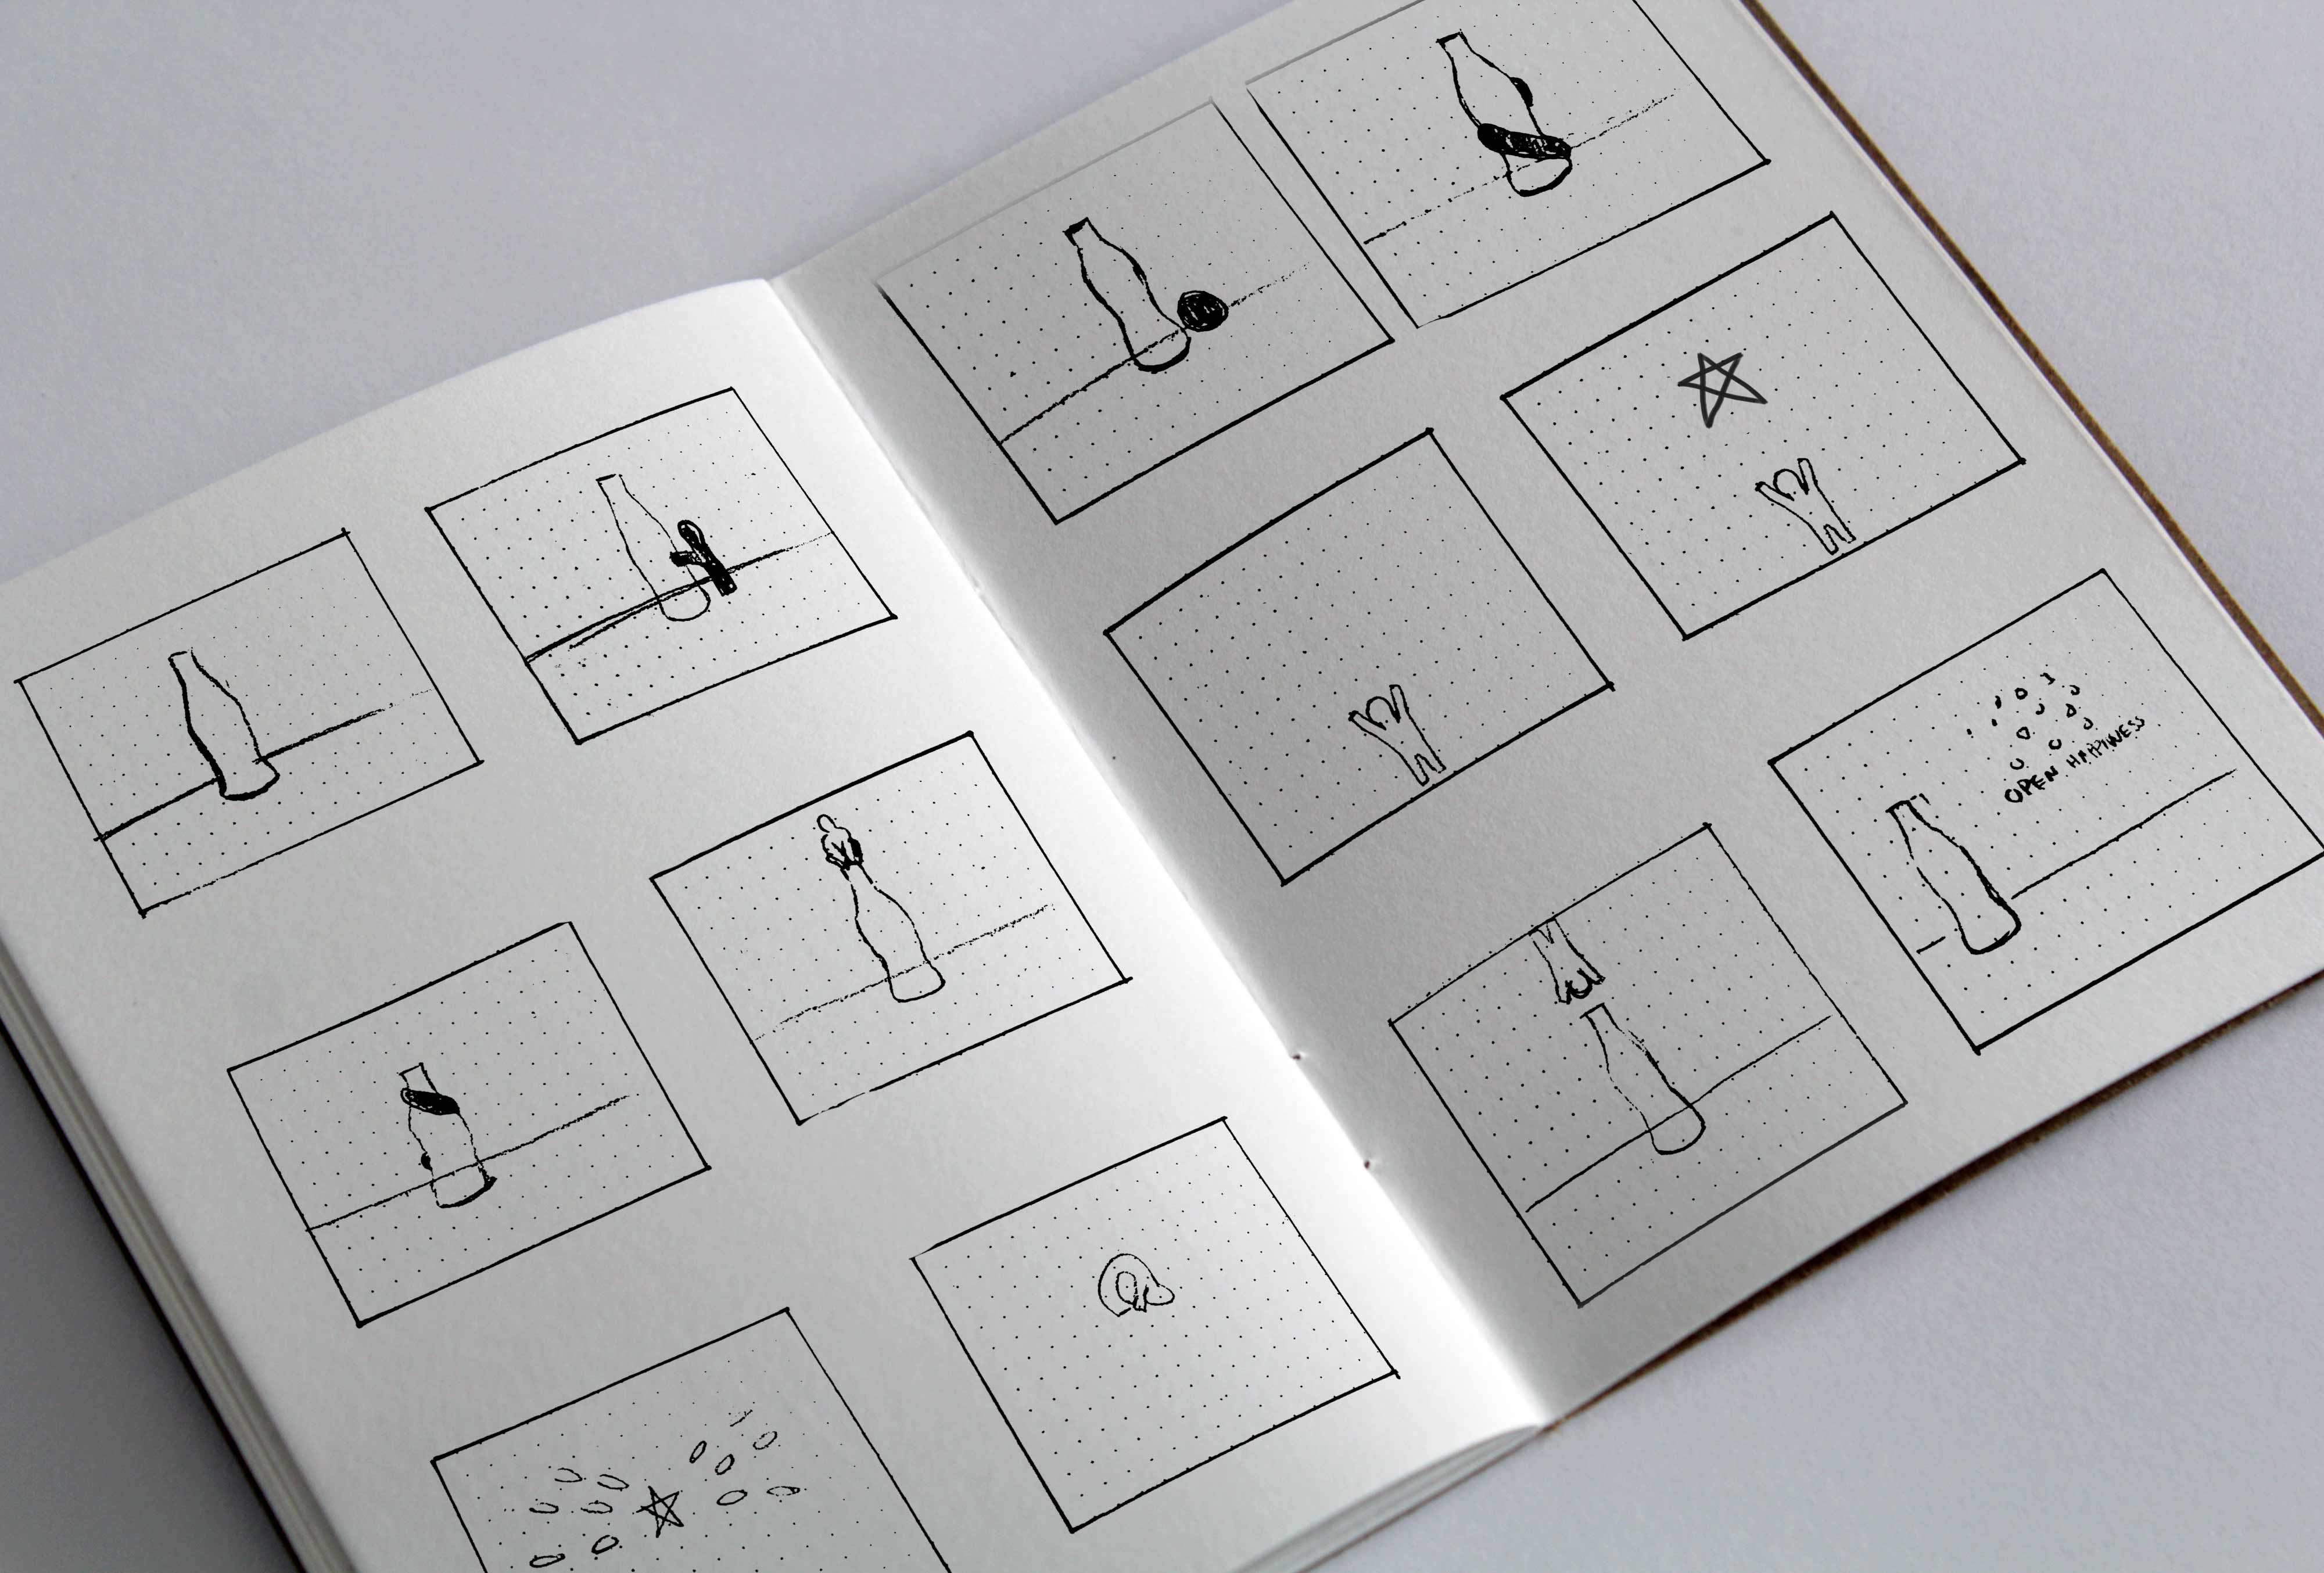 OPEN HAPPINESS